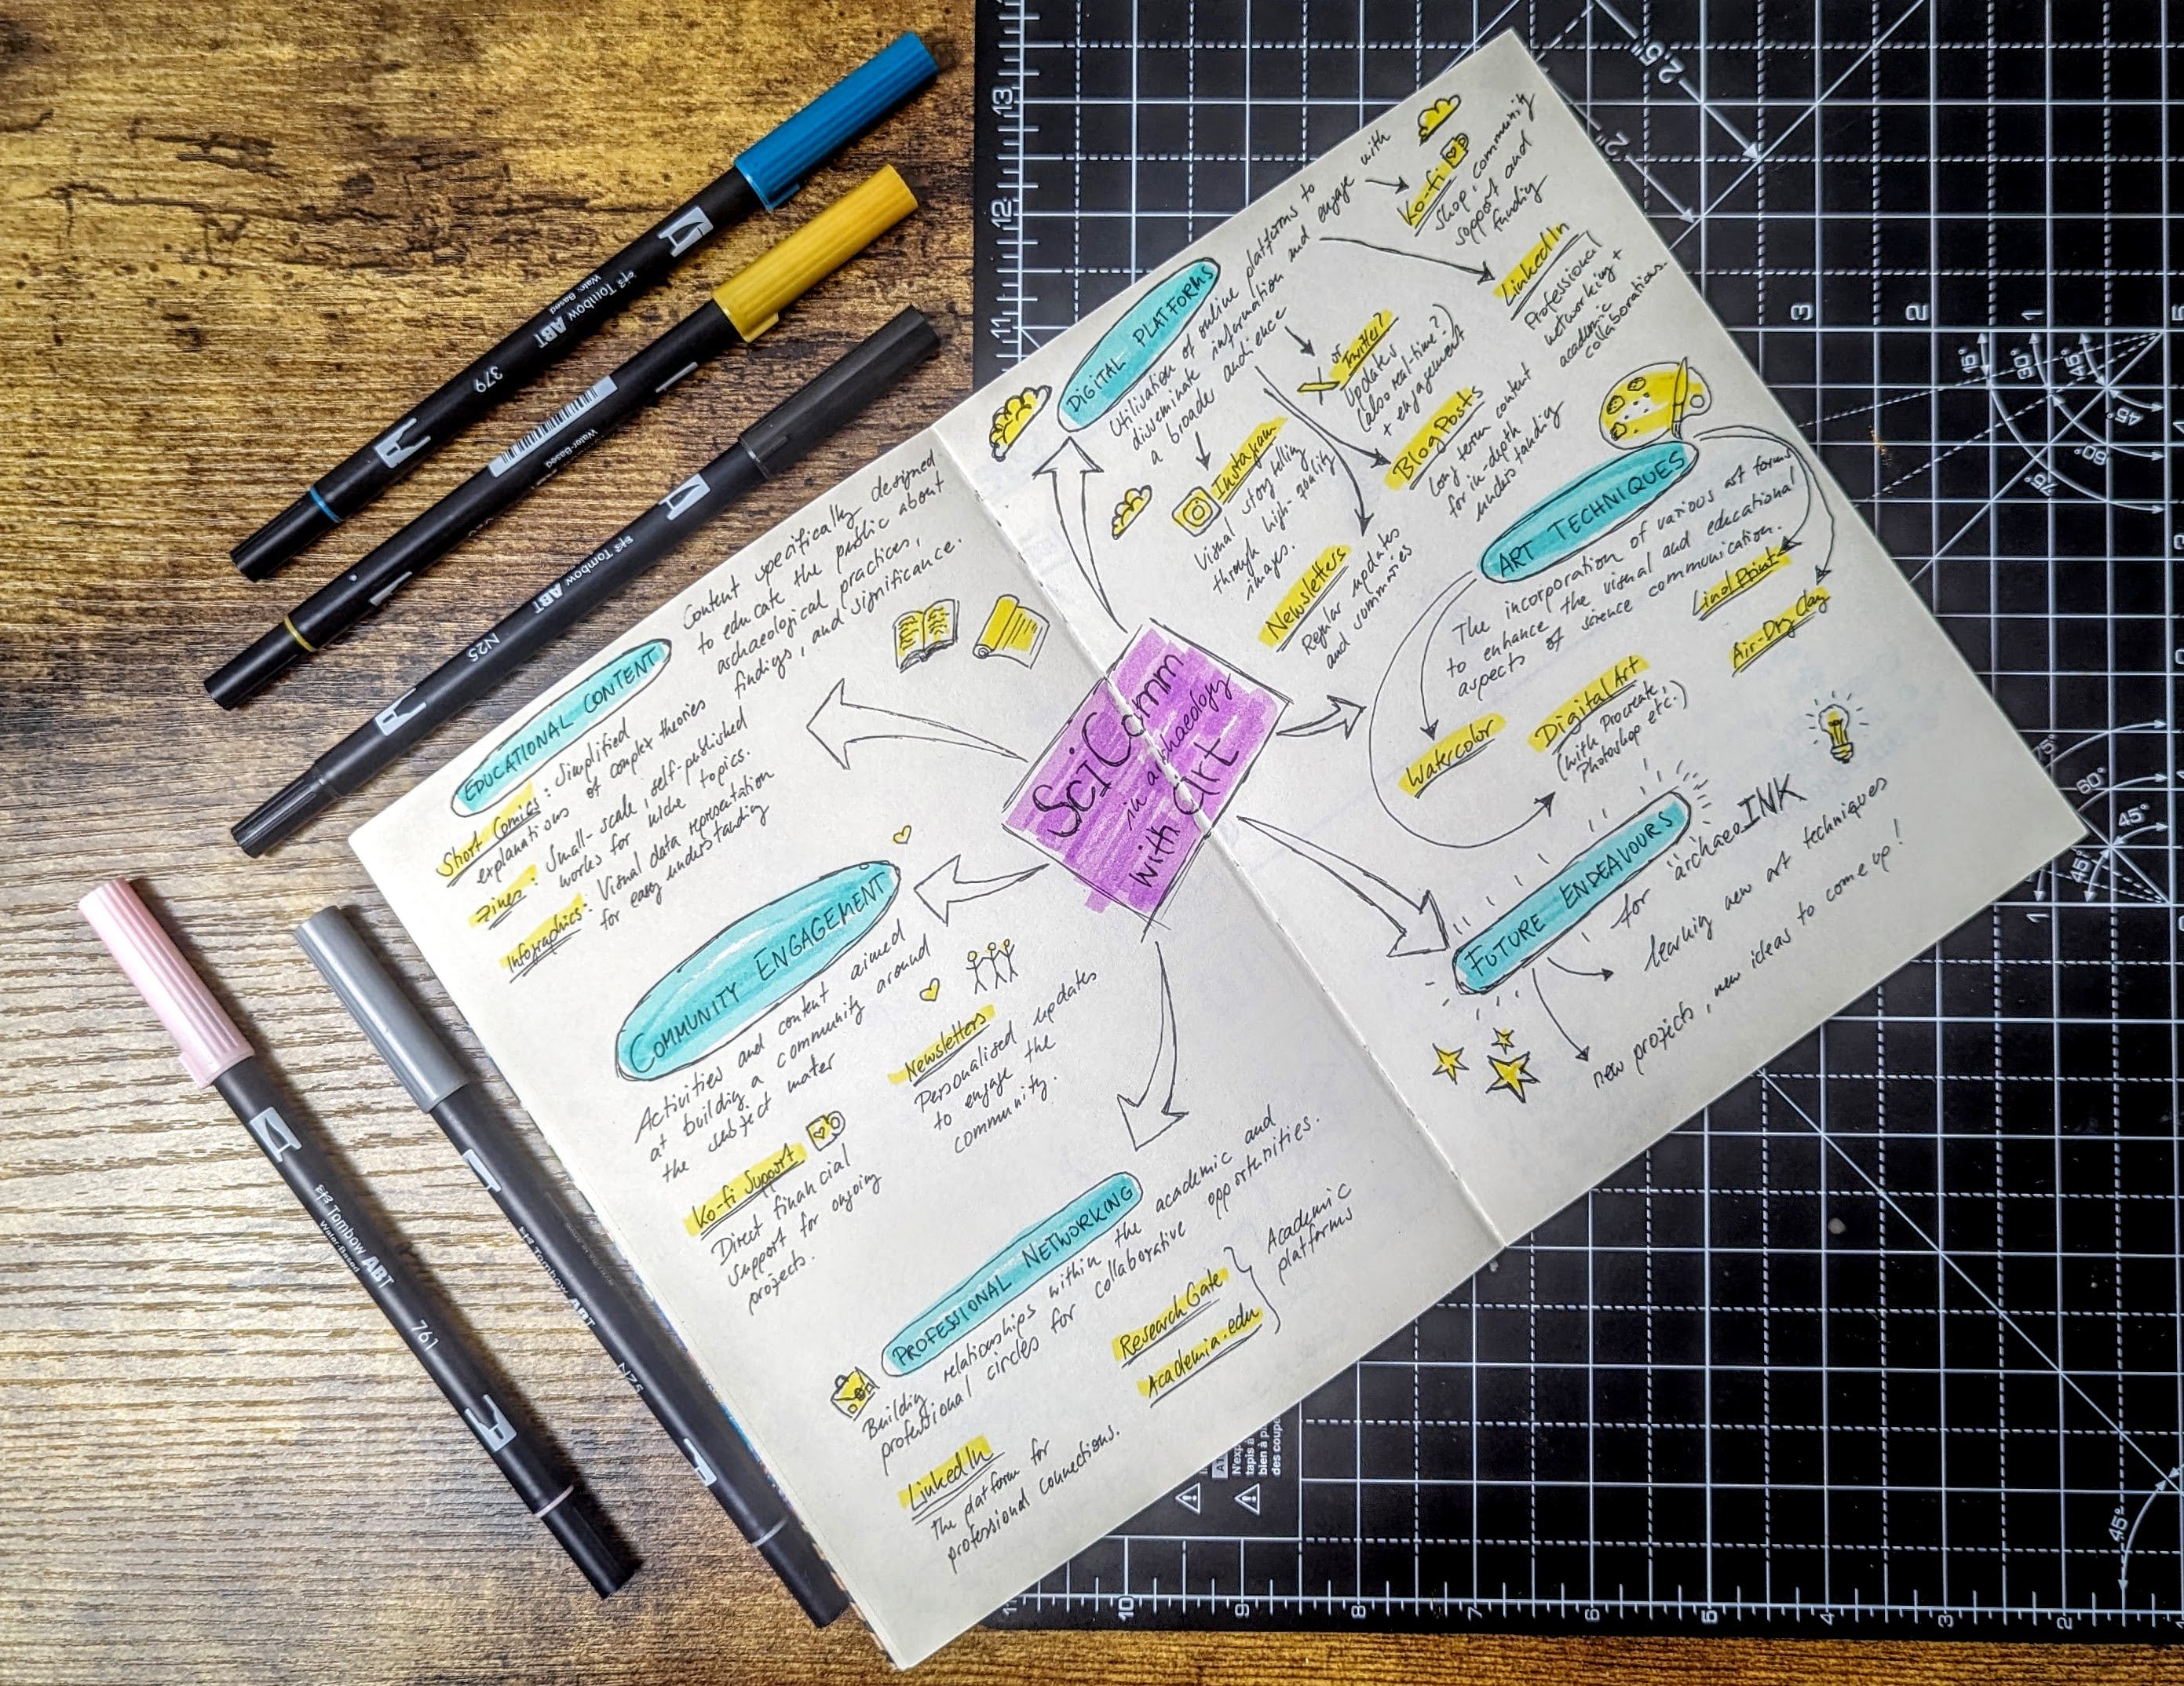 SciComm
in archaeology
with Art
EDUCATIONAL CONTENT
Content specifically designed
to educate the public about
archaeological practices,
findigs, and significance.
Short Comics: Simplified
explanations of complex theories
Zines: Small-scale, self-published
works for niche topics.
Infographics: Visual data representation
for easy understanding
COMMUNITY ENGAGEMENT
Activities and content aimed
at buildig a community around
the subject mater
Newsletters
Personalised updates
to engage the
community.
Ko-fi Support
Direct financial
support for ongoing
projects.
PROFESSIONAL NETWORKING
Buildig relationships within the academic and
professional circles for collaborative opportunities.
ResearchGate
Academia.edu
Academic
platforms
LinkedIn
the platform for
professional connections.
DIGITAL PLATFORMS
Utilisation of online platforms to
disseminate information and engage with
a broader audience
Ko-fi
shop, community
support and
fundig
LinkedIn
Professional
networking +
academic
collaborations.
X or Twitter?
Updates
(also real-time?)
+ engagement
Blog Posts
Long term content
for in-depth
understanding
Instagram
Visual story telling
through high-quality
images.
Newsletters
Regular updates
and summaries
ART TECHNIQUES
The incorporation of various art forms
to enhance the visual and educational
aspects of science communication.
Linol Print
Air-Dry Clay
Watercolor
Digital Art
(with Procreate,
Photoshop etc.)
FUTURE ENDEAVOURS
for archaeoINK
learnig new art techniques
new projects, new ideas to come up!
Tombow ABT
Water-Based
379
Water-Based
Tombow ABT
N25
Tombow ABT
Water-Based
761
Tombow ABT
N75
13
12
11
2.5"
2"
3
2
1
15°
60°
45°
45°
60°
75°
75°
60°
45°
45°
1
45°
11
10
9
8
7
6
5
4
3
2